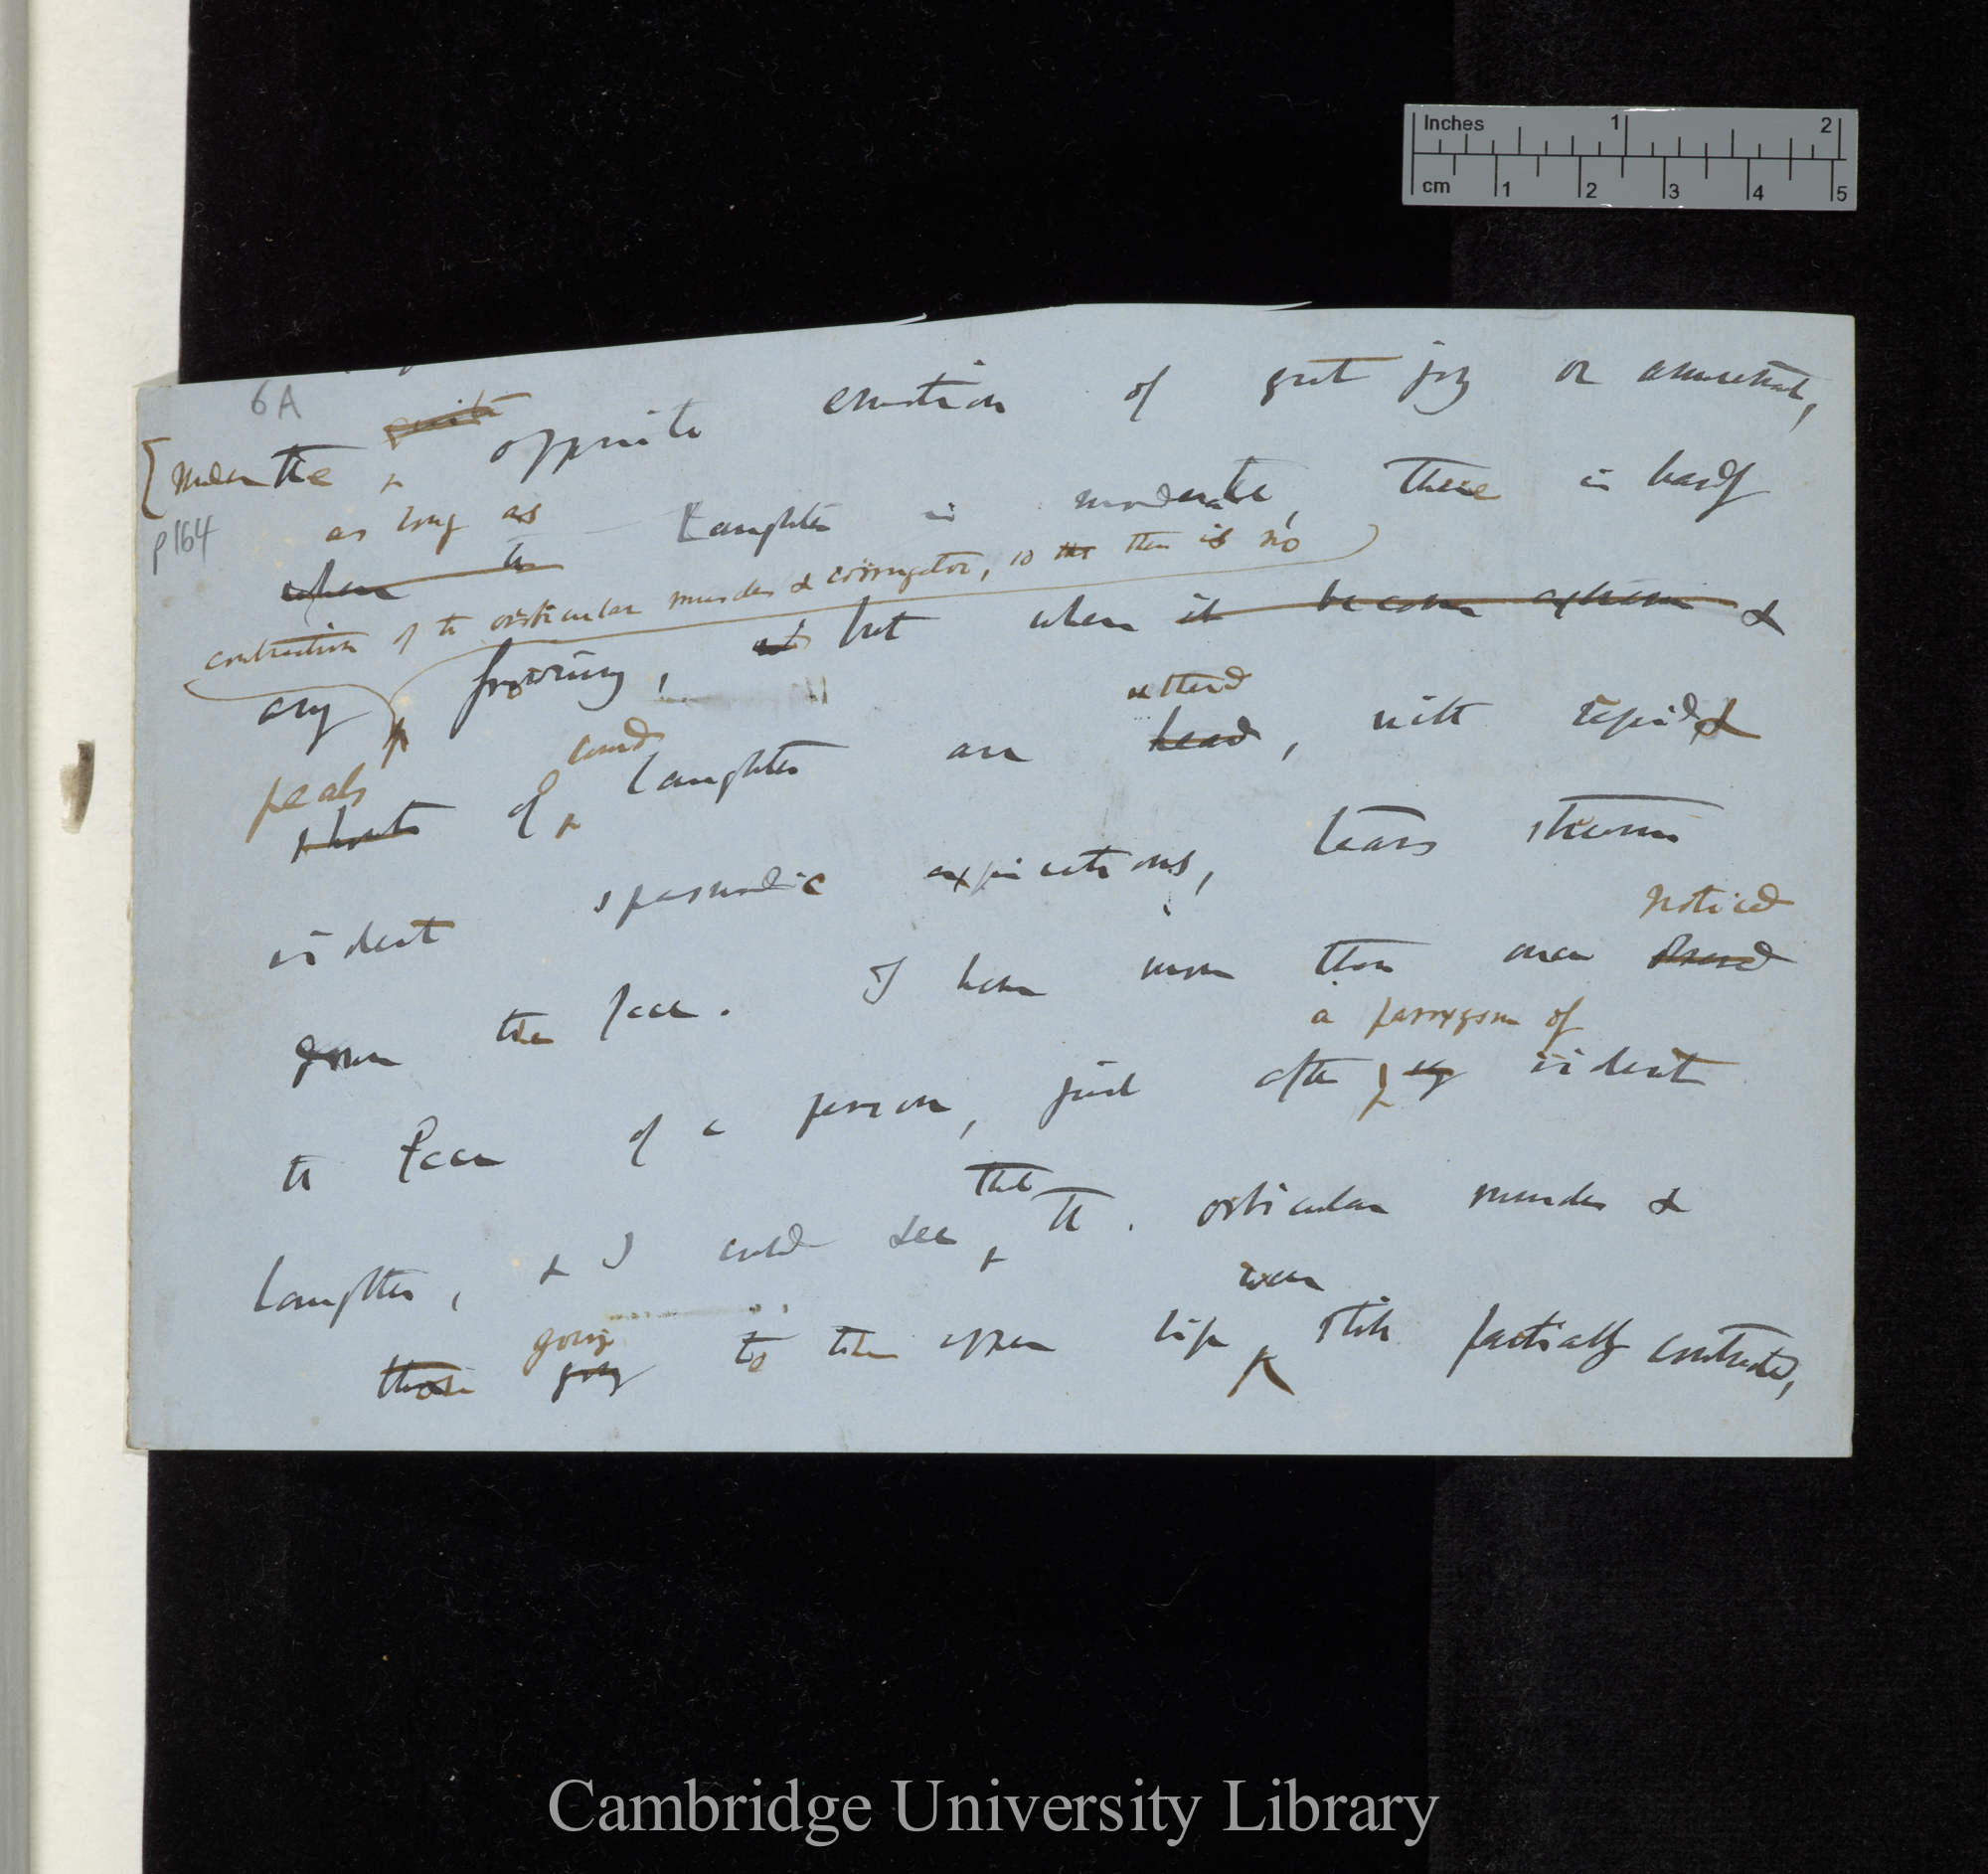 Inches 1 2
cm 1 2 3 4 5
6A
quite
[Under the opposite emotion of great joy or amusement,
p164
as long as
when the laughter is moderate, there is hardly
contraction of the orbicular muscles & corrugator, so the then is no
any frowning, but when it become extreme &
uttered
peals loud
shouts of laughter are heard, with rapid &
violent spasmodic expirations, tears stream
noticed
down the face. I have more than once
a paroxysm of
the face of a person, just after violent
that
laughter, & I could see the orbicular muscles &
were
going
those going to the upper lip still partially contracted,
Cambridge University Library